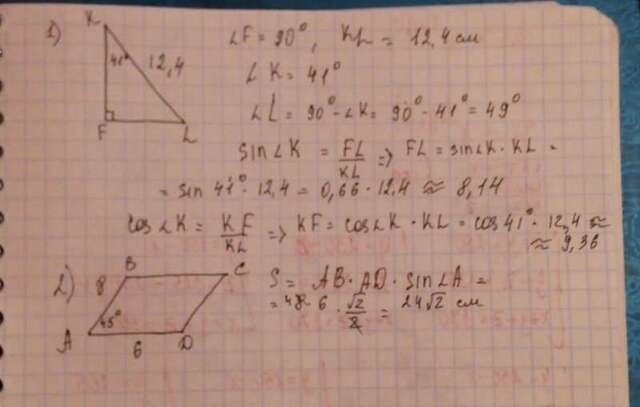 1) K
41° 12,4
F L
∠F = 90°, KL = 12,4 см
∠K = 41°
∠L = 90° - ∠K = 90° - 41° = 49°
sin∠K = FL/KL => FL = sin∠K · KL =
= sin 41° · 12,4 = 0,66 · 12,4 ≈ 8,14
cos∠K = KF/KL => KF = cos∠K · KL = cos 41° · 12,4 ≈
≈ 9,36
2) B C
8
45°
A 6 D
S = AB · AD · sin∠A =
6 · √2/2 = 24√2 см